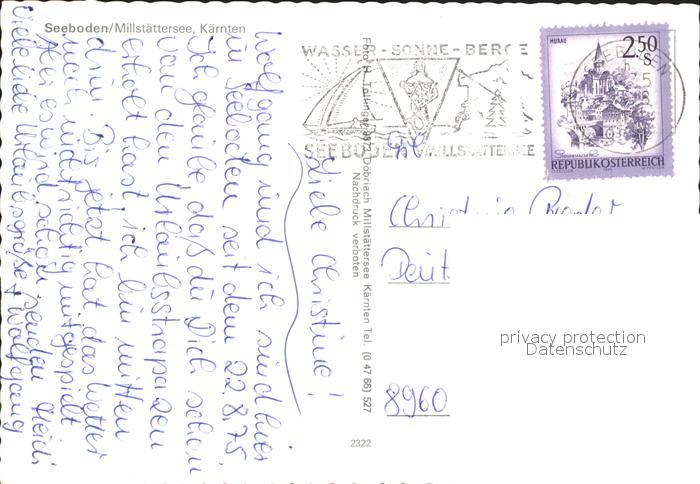 Seeboden/Millstättersee, Kärnten
WASSER - SONNE - BERGE
SEEBODEN MILLSTÄTTERSEE
MURAU
2.50
S
REPUBLIK ÖSTERREICH
Liebe Christine!
Wolfgang und ich sind hier
in Seeboden seit dem 22.8.75.
Ich glaube daß du Dich schon
von den Urlaubsstrapazen
erholt hast ich bin mitten
drin. Bis jetzt hat das Wetter
noch nicht richtig mitgespielt
Aber es wird schon werden Heidi
Viele liebe Urlaubsgrüße + Wolfgang
Döbriach Millstättersee Kärnten Tel. (0 47 66) 527
Nachdruck verboten
2322
8960
privacy protection
Datenschutz